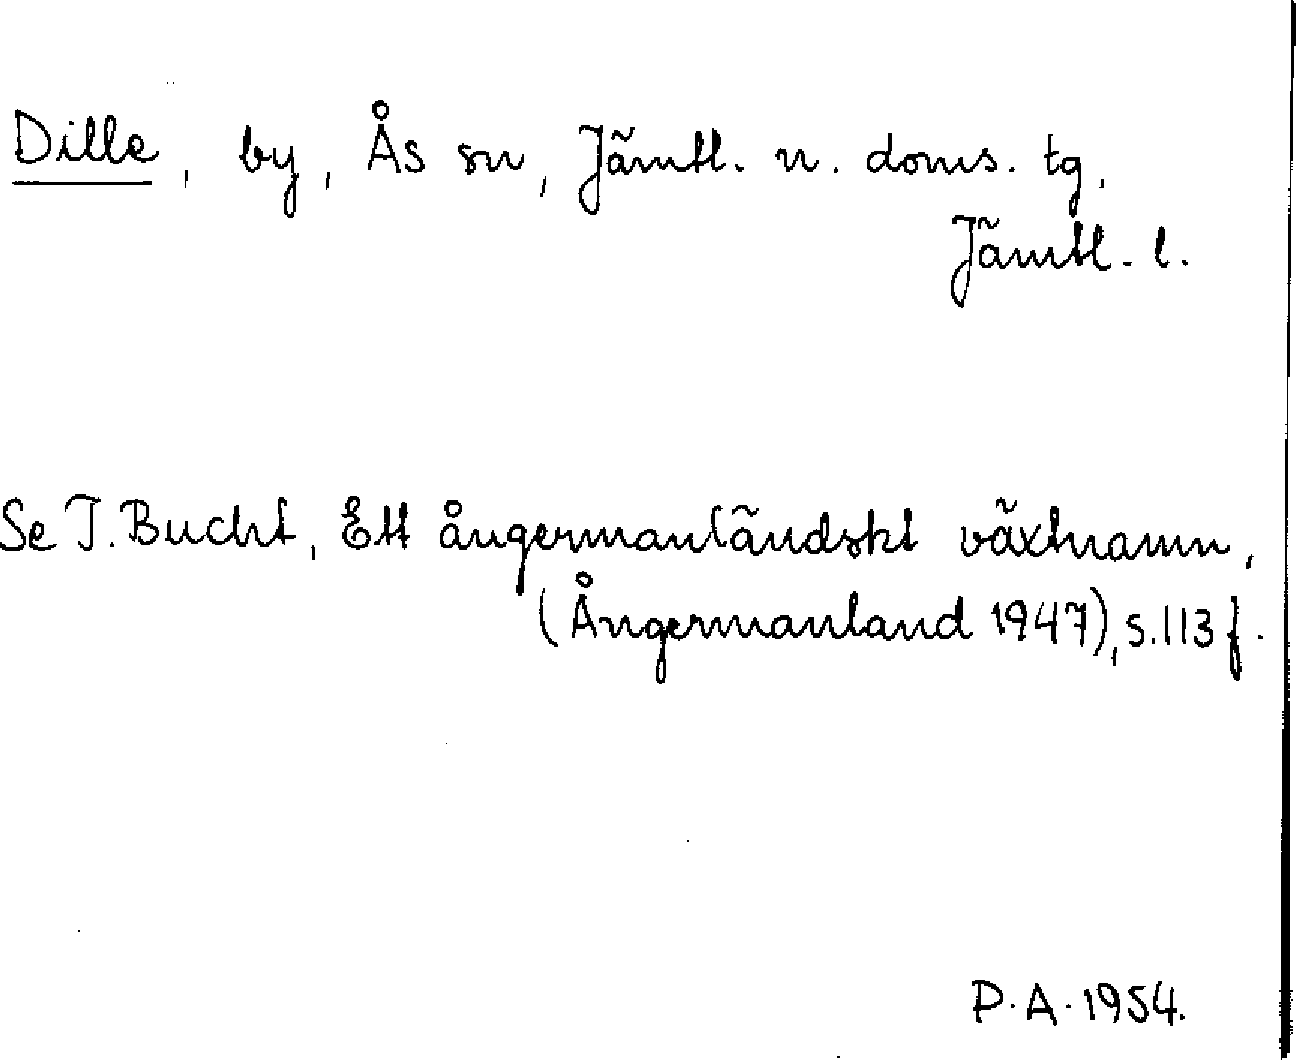 Dille, by, Ås sn, Jämtl. n. doms. tg,
Jämtl. l.
Se T. Bucht, Ett ångermanländskt växtnamn,
(Ångermanland 1947), s. 113 f.
P. A. 1954.